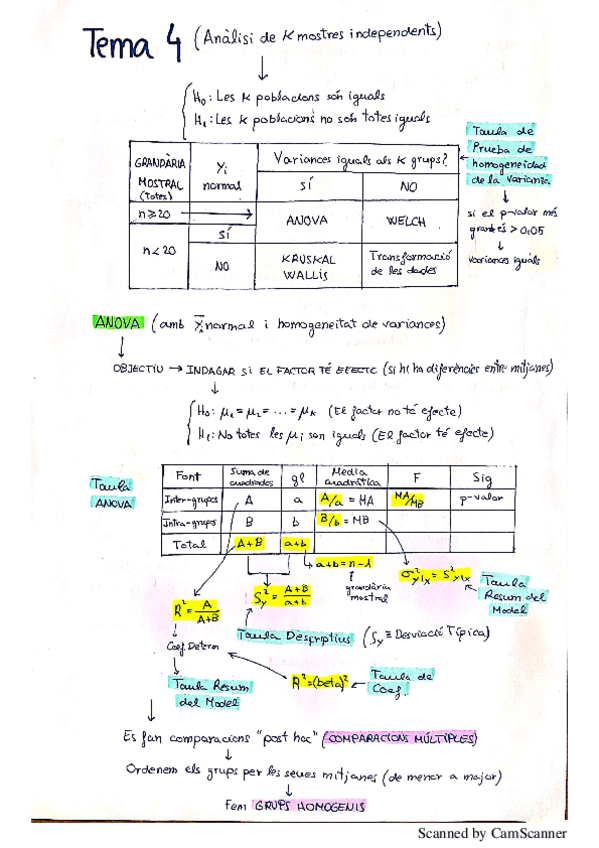 Tema 4 (Anàlisi de K mostres independents)
H₀: Les K poblacions són iguals
H₁: Les K poblacions no són totes iguals
GRANDÀRIA
MOSTRAL
(Totes)
Yi
normal
Variances iguals als K grups?
SÍ
NO
n≥20
ANOVA
WELCH
n<20
SÍ
NO
KRUSKAL
WALLIS
Transformació
de les dades
Taula de
Prueba de
homogeneidad
de la Varianza
si el p-valor més
gran és > 0'05
Variances iguals
ANOVA (amb Y̅ᵢ normal i homogeneitat de variances)
OBJECTIU → INDAGAR SI EL FACTOR TÉ EFECTE (Si hi ha diferències entre mitjanes)
H₀: μ₁ = μ₂ = ... = μK (El factor no té efecte)
H₁: No totes les μi son iguals (El factor té efecte)
Taula
ANOVA
Font
Suma de
cuadrados
gl
Media
cuadrática
F
Sig
Inter-grupos
A
a
A/a = MA
MA/MB
p-valor
Intra-grupos
B
b
B/b = MB
Total
A+B
a+b
a+b = n-1
grandària
mostral
R² = A/A+B
S²y = A+B/a+b
σ²y/x = S²y/x
Taula
Resum del
Model
Coef Determ
Taula Descriptius (Sy ≡ Desviació Típica)
Taula Resum
del Model
R² = (beta)²
Taula de
Coef.
Es fan comparacions "post hoc" (COMPARACIONS MÚLTIPLES)
Ordenem els grups per les seues mitjanes (de menor a major)
Fem GRUPS HOMOGENIS
Scanned by CamScanner